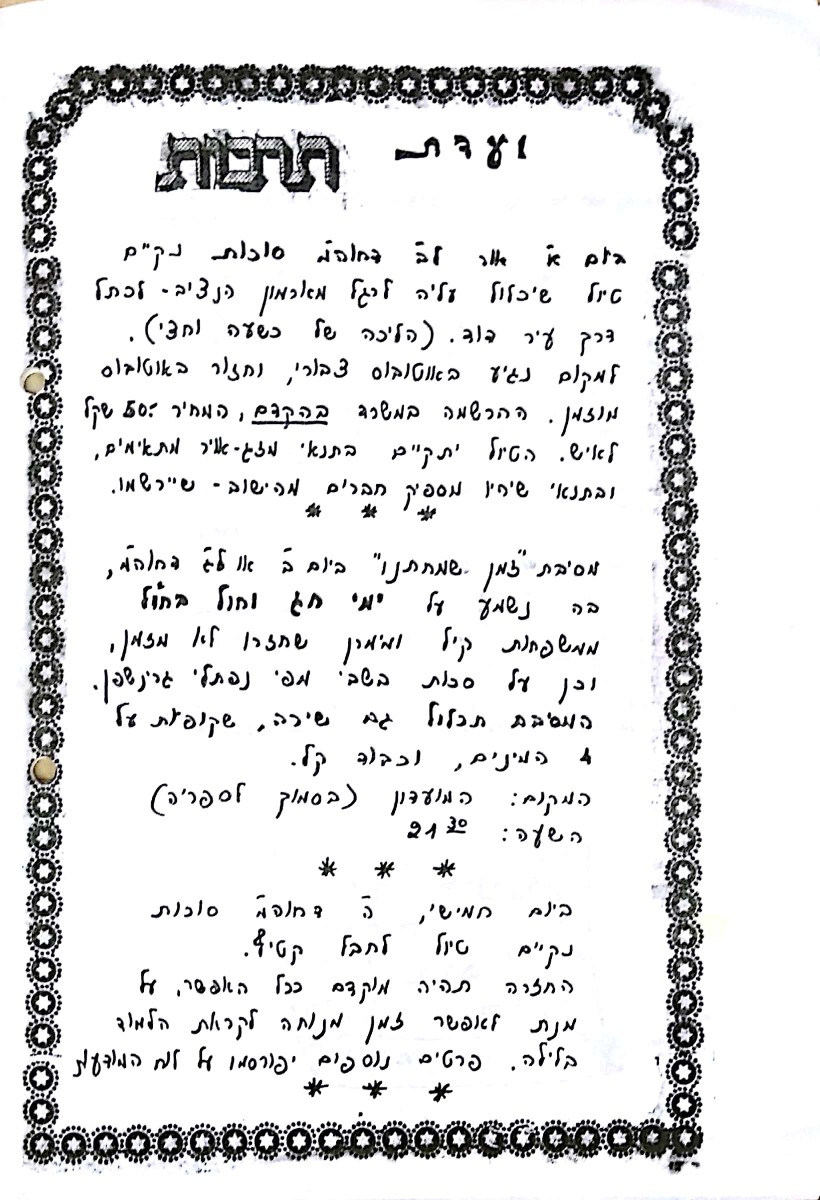 ועדת תרבות
ביום א' אור לב' דחוהמ סוכות נקיים
טיול שיכלול עליה לרגל מארמון הנציב - לכתל
דרך עיר דוד. (הליכה של כשעה וחצי).
למקום נגיע באוטובוס צבורי, וחזור באוטובוס
מוזמן. ההרשמה במשרד בהקדם, המחיר 50.- שקל
לאיש. הטיול יתקיים בתנאי מזג-אויר מתאימים,
ובתנאי שיהיו מספיק חברים מהישוב - שיירשמו.
* * *
מסיבת "זמן שמחתנו" ביום ב' או לג' דחוהמ,
בה נשמע על ימי חג וחול בחו"ל
ממשפחות קיל ומימרן שחזרו לא מזמן,
וכן על סכות בשבי מפי נפתלי גרינשפן.
המסיבה תכלול גם שירה, שקופיות על
4 המינים, וכבוד קל.
המקום: המועדון (בסמוך לספריה)
השעה: 21³⁰
* * *
ביום חמישי, ה' דחוהמ סוכות
נקיים טיול לחבל קטיף.
החזרה תהיה מוקדם ככל האפשר, על
מנת לאפשר זמן מנוחה לקראת הלמוד
בלילה. פרטים נוספים יפורסמו על לוח המודעות
* * *